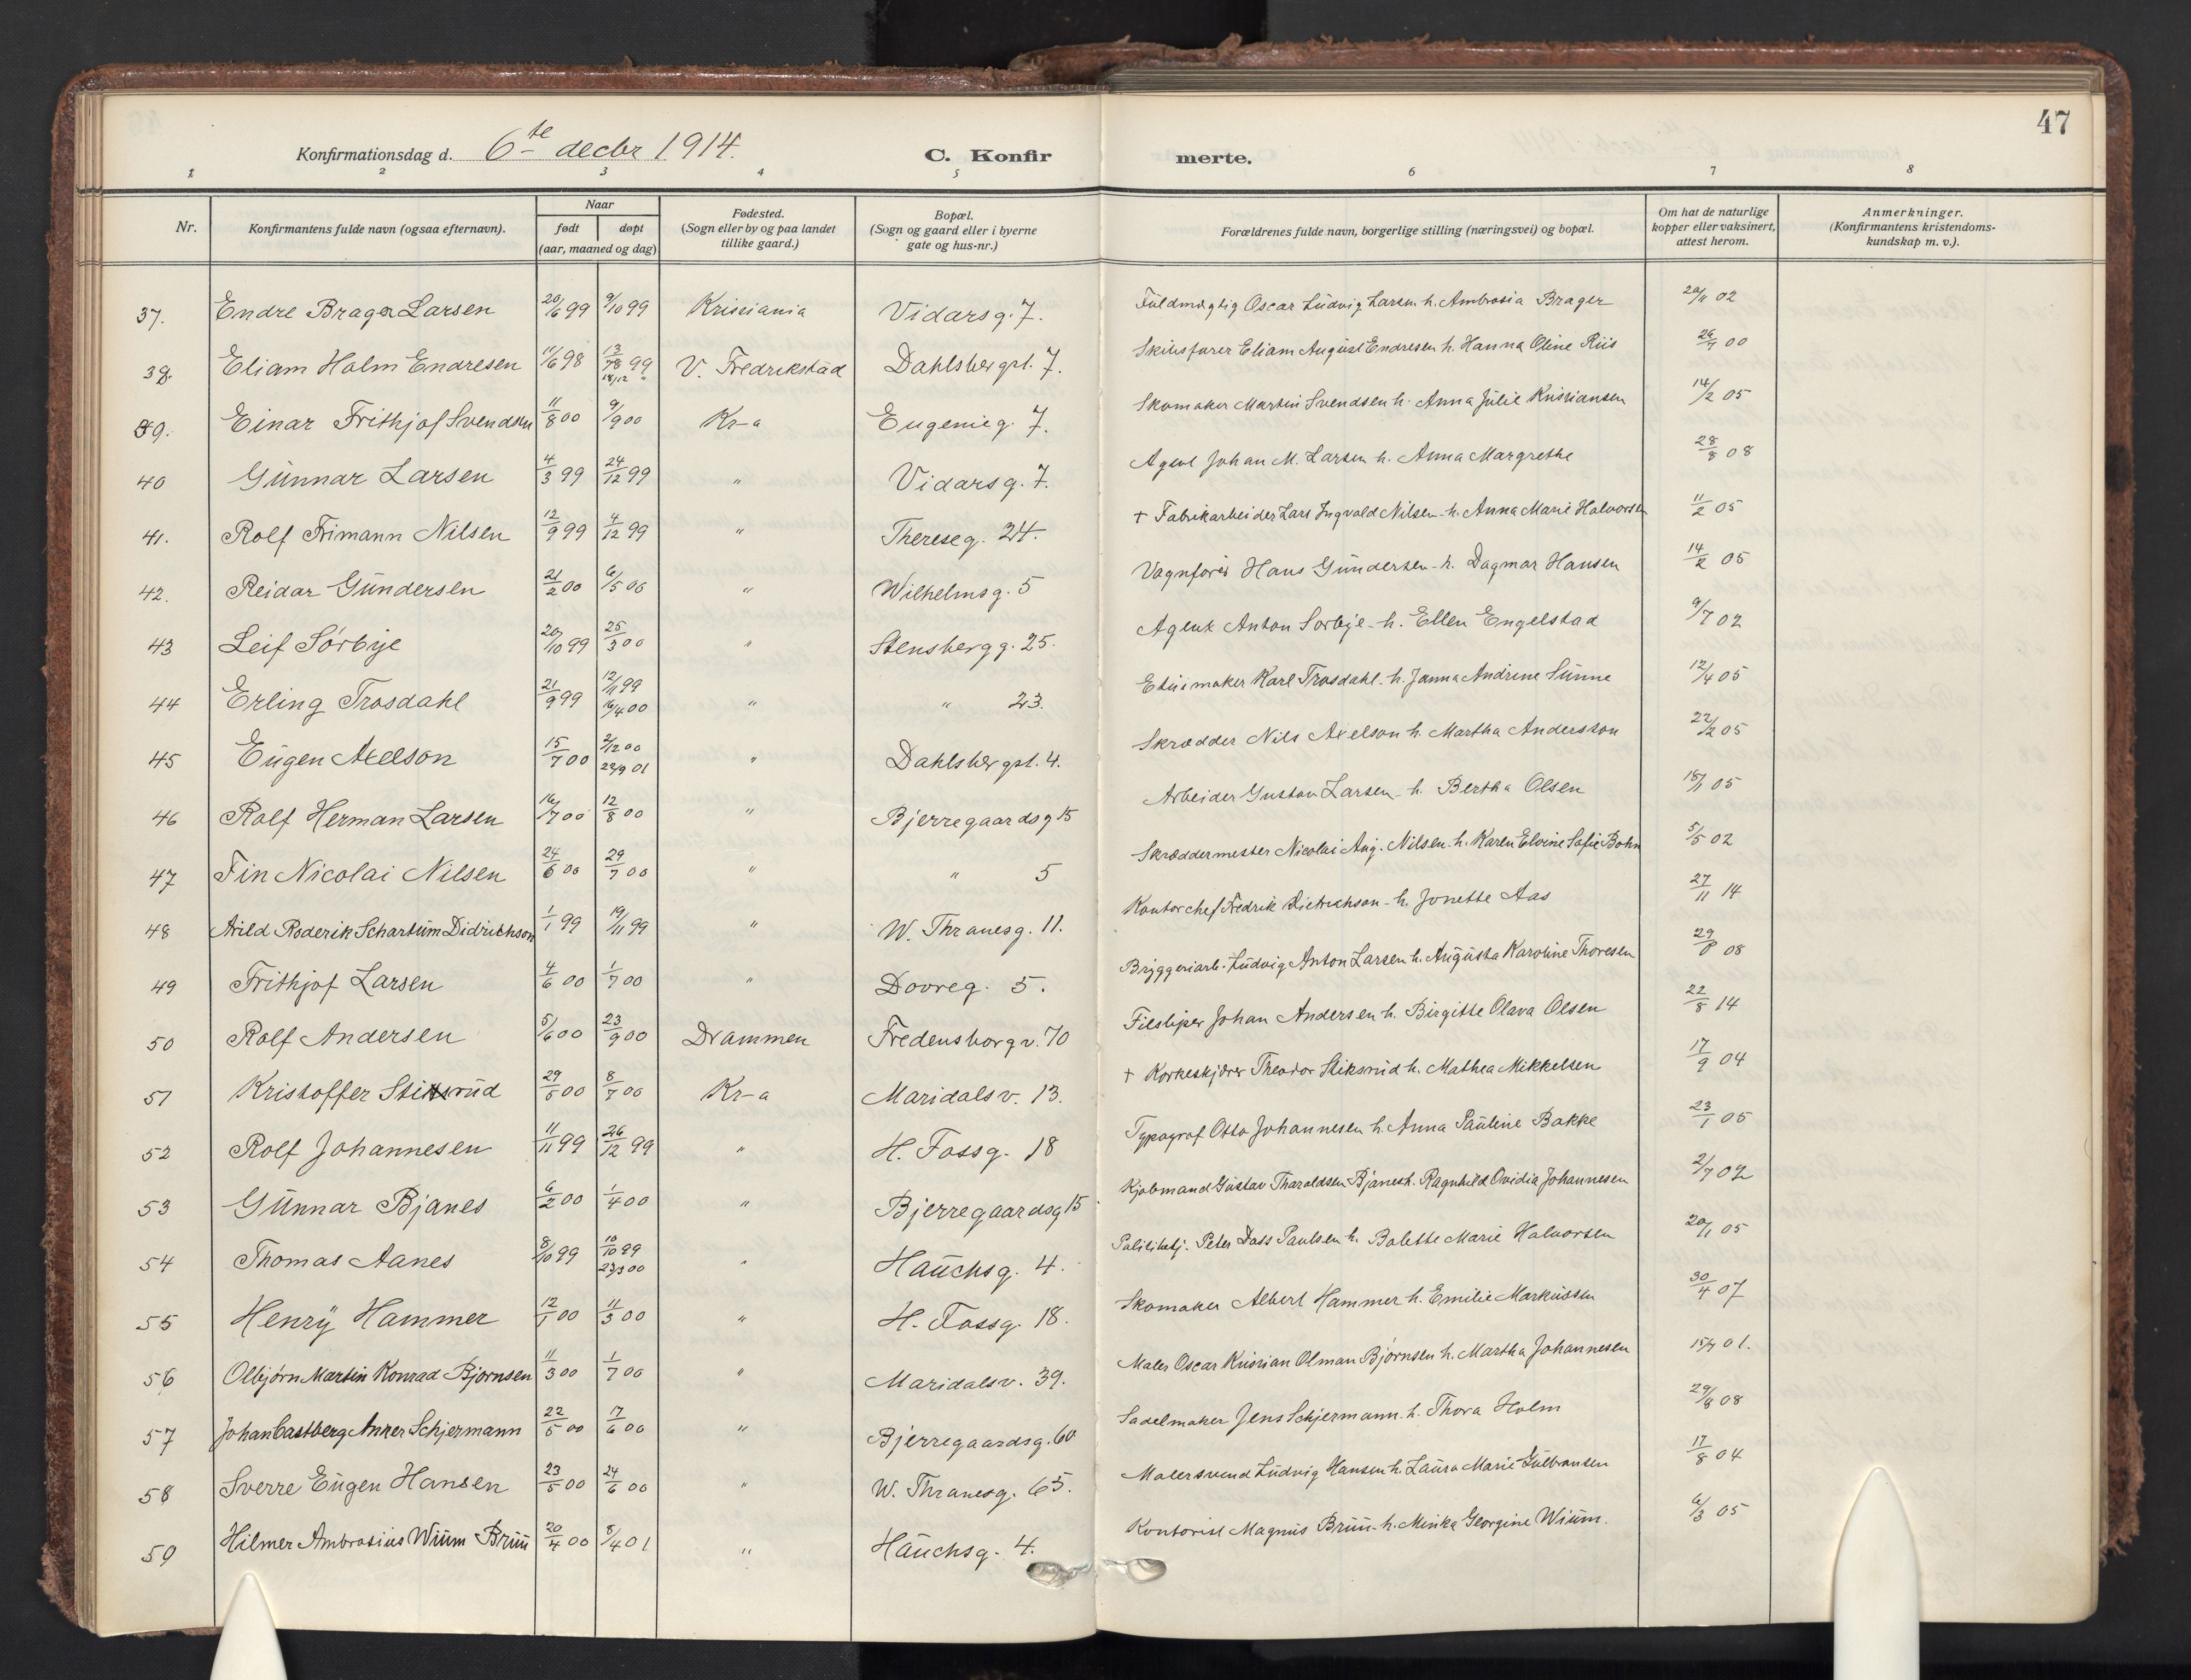 47
Konfirmationsdag d. 6te decbr 1914. C. Konfir merte.
1 2 3 4 5 6 7 8
Nr. Konfirmantens fulde navn (ogsaa efternavn). Naar født døpt (aar, maaned og dag) Fødested. (Sogn eller by og paa landet tillike gaard.) Bopæl. (Sogn og gaard eller i byerne gate og hus-nr.) Forældrenes fulde navn, borgerlige stilling (næringsvei) og bopæl. Om hat de naturlige kopper eller vaksinert, attest herom. Anmerkninger. (Konfirmantens kristendoms-kundskap m. v.).
37. Endre Brager Larsen 20/6 99 9/10 99 Kristiania Vidarsg. 7. Fuldmægtig Oscar Ludvig Larsen h. Ambrosia Brager 20/11 02
38. Eliam Holm Endresen 11/6 98 13/8 99 18/12 " V. Fredrikstad Dahlsbergst. 7. Skibsfører Eliam August Endresen h. Hanna Oline Riis 00
39. Einar Frithjof Svendsen 11/8 00 9/9 00 Kr-a Eugenieg. 7. Skomaker Martin Svendsen h. Anna Julie Kristiansen 14/2 05
40 Gunnar Larsen 4/3 99 24/12 99 " Vidarsg. 7. Agent Johan M. Larsen h. Anna Margrethe 28/8 08
41. Rolf Frimann Nilsen 12/9 99 4/12 99 " Thereseg. 24. + Fabrikarbeider Lars Ingvald Nilsen h. Anna Marie Halvorsen 11/2 05
42. Reidar Gundersen 21/2 00 6/5 06 " Wilhelmsg. 5 Vognfører Hans Gundersen h. Dagmar Hansen 14/2 05
43 Leif Sörbye 20/10 99 25/3 00 " Stensbergg. 25. Agent Anton Sorbye h. Ellen Engelstad 9/7 02
44 Erling Trosdahl 21/9 99 12/11 99 16/4 00 " " 23. Etuismaker Karl Trosdahl h. Janna Andrine Sunne 12/4 05
45 Eugen Axelson 15/7 00 2/12 00 22/9 01 " Dahlsbergst. 4. Skrædder Nils Axelson h. Martha Andersson 22/2 05
46 Rolf Herman Larsen 16/7 00 12/8 00 " Bjerregaardsg 15 Arbeider Gustav Larsen h. Bertha Olsen 18/1 05
47 Fin Nicolai Nilsen 24/6 00 29/7 00 " " 5 Skræddermester Nicolai Aug. Nilsen h. Karen Elvine Sofie Bohn 5/5 02
48 Arild Roderik Schartum Didrichson 1/1 99 19/11 99 " W. Thranesg. 11. Kontorchef Fredrik Dietrichson h. Jonette Aas 27/11 14
49 Frithjof Larsen 4/6 00 1/7 00 " Dovreg. 5. Bryggeriarb. Ludvig Anton Larsen h. Augusta Karoline Thoresen 29/8 08
50 Rolf Andersen 5/6 00 23/9 00 Drammen Fredensborgv. 70 Filsliper Johan Andersen h. Birgitte Olava Olsen 22/8 14
51 Kristoffer Stiksrud 29/5 00 8/7 00 Kr-a Maridalsv. 13. + Korkeskjærer Theodor Stiksrud h. Mathea Mikkelsen 17/9 04
52 Rolf Johannesen 11/11 99 26/12 99 " H. Fossg. 18 Typograf Otto Johannesen h. Anna Pauline Bakke 23/1 05
53 Gunnar Bjanes 6/2 00 1/4 00 " Bjerregaardsg 15 Kjøbmand Gustav Tharaldsen Bjanes h. Ragnhild Ovidia Johannesen 2/7 02
54 Thomas Aanes 8/10 99 10/10 99 23/3 00 " Hauchsg. 4. Politibetj. Peter Dass Paulsen h. Balette Marie Halvorsen 20/1 05
55 Henry Hammer 12/1 00 11/3 00 " H. Fossg. 18. Skomaker Albert Hammer h. Emilie Markussen 30/4 07
56 Olbjørn Martin Konrad Bjørnsen 11/3 00 1/7 00 " Maridalsv. 39. Maler Oscar Kristian Olman Bjørnsen h. Martha Johannesen 15/7 01.
57 Johan Castberg Anker Schjermann 22/5 00 17/6 00 " Bjerregaardsg. 60 Sadelmaker Jens Schjermann h. Thora Holm 29/8 08
58 Sverre Eugen Hansen 23/5 00 24/6 00 " W. Thranesg. 65. Malersvend Ludvig Hansen h. Laura Marie Gulbransen 17/8 04
59 Hilmer Ambrosius Wium Bruu 20/4 00 8/4 01 " Hauchsg. 4. Kontorist Magnus Bruu h. Minka Georgine Wium. 6/3 05